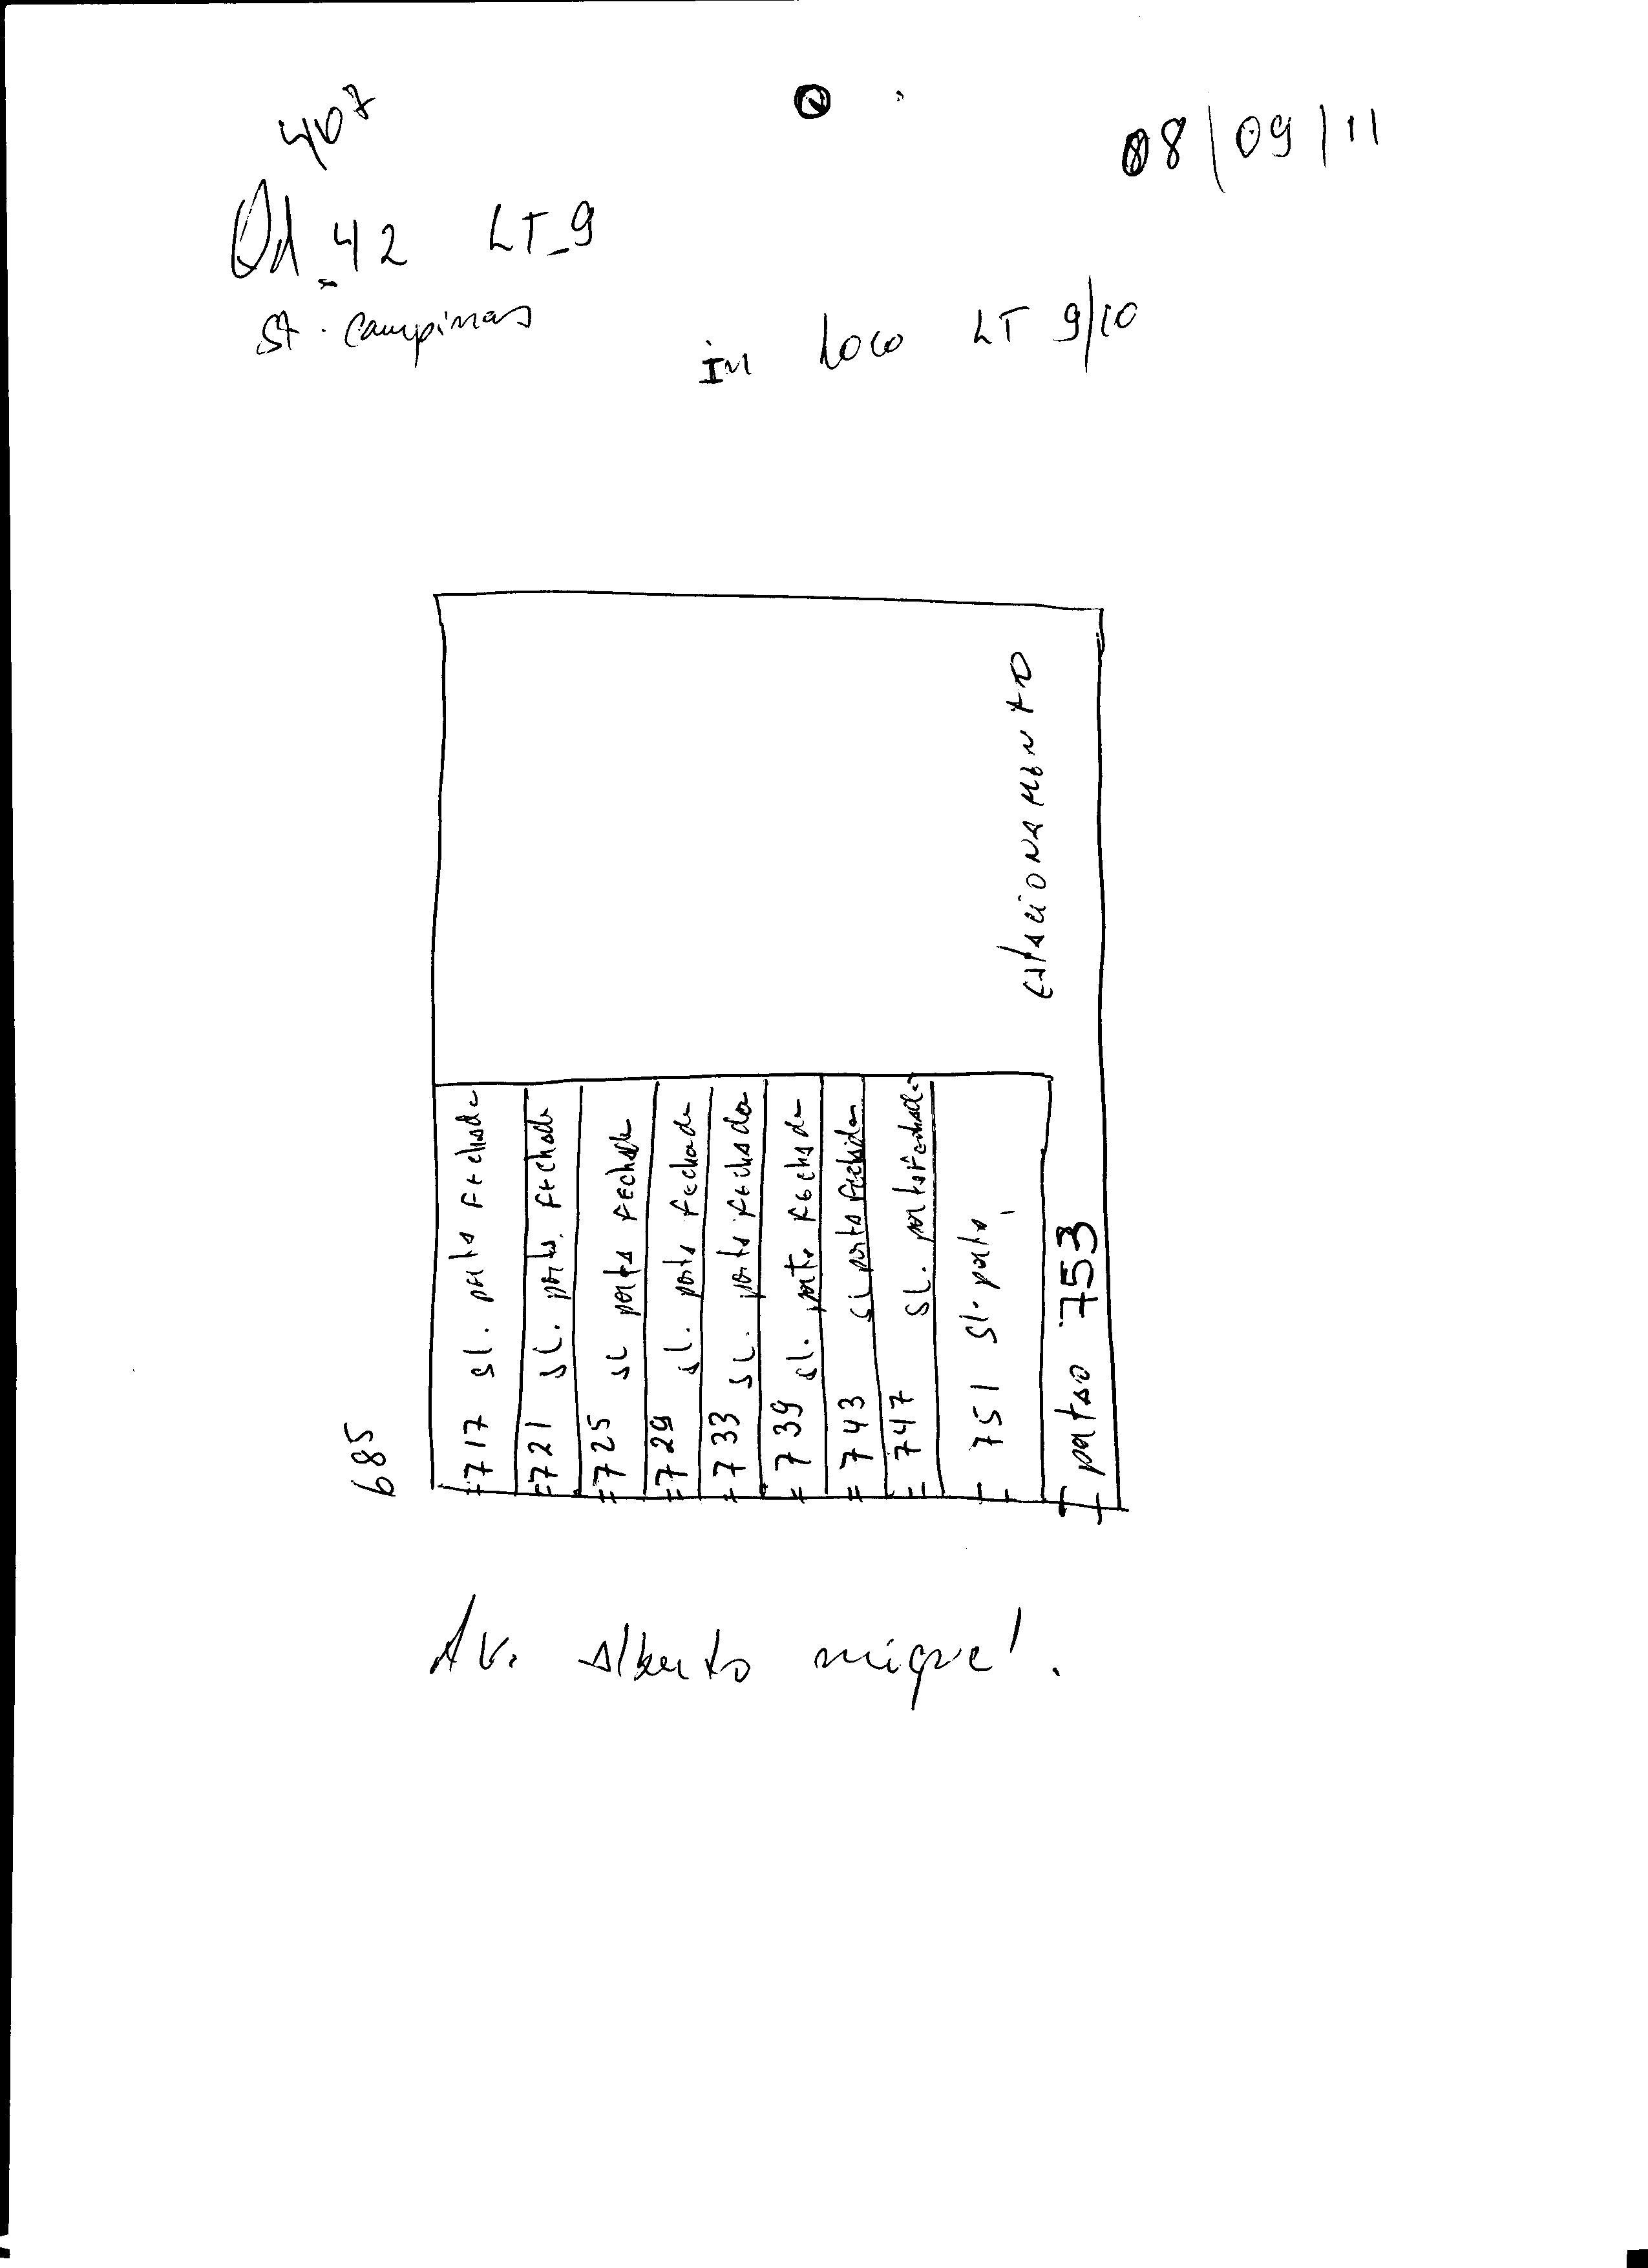 407
08/09/11
Qd_42 LT_9
St. Campinas
in loco LT 9/10
estacionamento
685
717 sl. porta fechada
721 sl. porta fechada
725 sl porta fechada
729 sl. porta fechada
733 sl. porta fechada
739 sl. porta fechada
743 sl porta fechada
747 sl. porta fechada
751 sl. porta
753
Av. Alberto miguel.